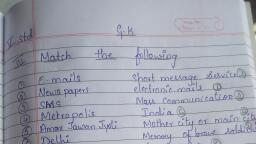 G.K
V. std
III Match the following
① E-mails Short message service ③
② News papers electronic mails ①
③ SMS Mass communication ②
④ Metropolis India
⑤ Amar Jawan Jyoti Mother city or main city
⑥ Delhi Memory of brave soldiers